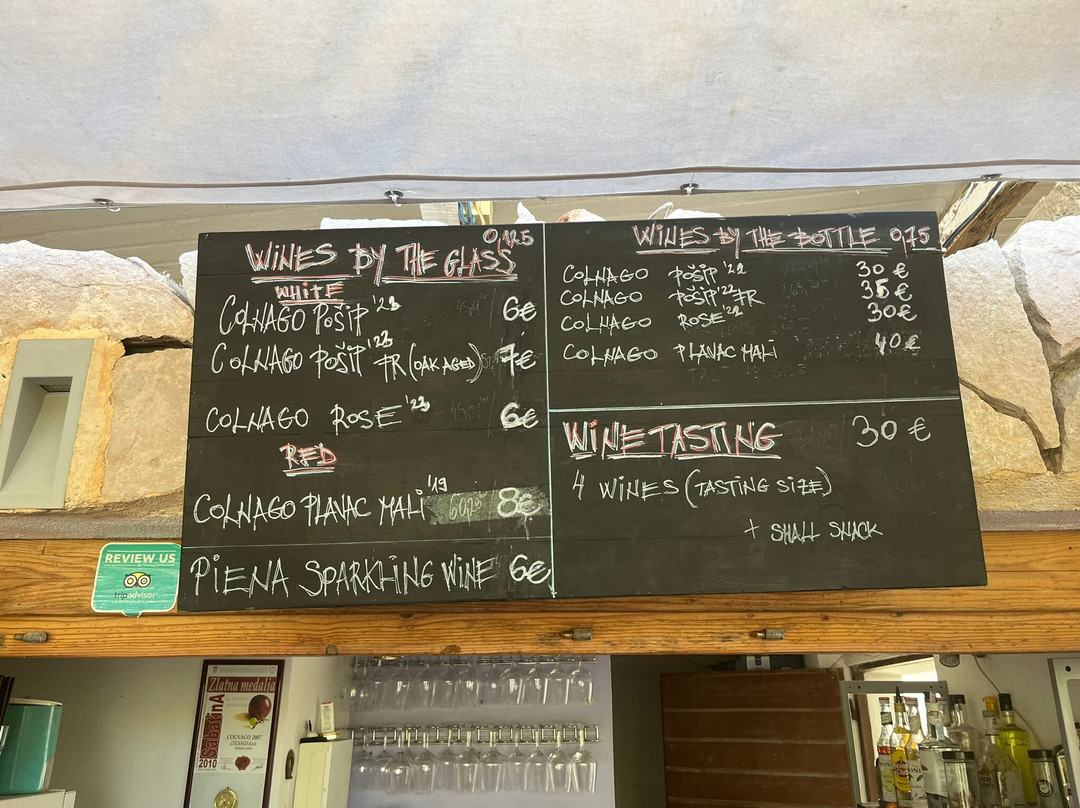 WINES BY THE GLASS 0,125
WHITE
COLNAGO POŠIP '23 6€
COLNAGO POŠIP '23 FR (OAK AGED) 7€
COLNAGO ROSE '23 6€
RED
COLNAGO PLAVAC MALI '19 8€
PIENA SPARKLING WINE 6€
WINES BY THE BOTTLE 0,75
COLNAGO POŠIP '22 30 €
COLNAGO POŠIP '22 FR 35 €
COLNAGO ROSE '22 30€
COLNAGO PLAVAC MALI 40€
WINE TASTING 30 €
4 WINES (TASTING SIZE)
+ SMALL SNACK
REVIEW US
tripadvisor
Zlatna medalja
SabatinA
2010
COLNAGO 2007